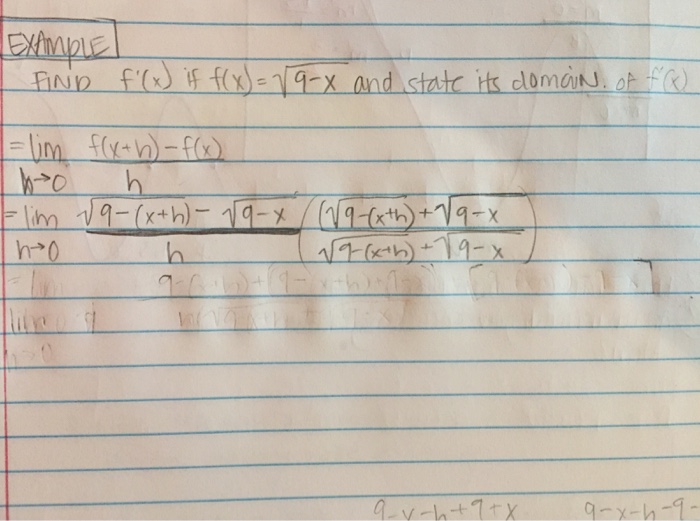 EXAMPLE
FIND f'(x) if f(x) = √9-x and state its domain. of f'(x)
= lim f(x+h) - f(x)
h→0 h
= lim √9-(x+h) - √9-x (√9-(x+h) + √9-x)
h→0 h √9-(x+h) + √9-x
9-x-h+9+x 9-x-h-9-